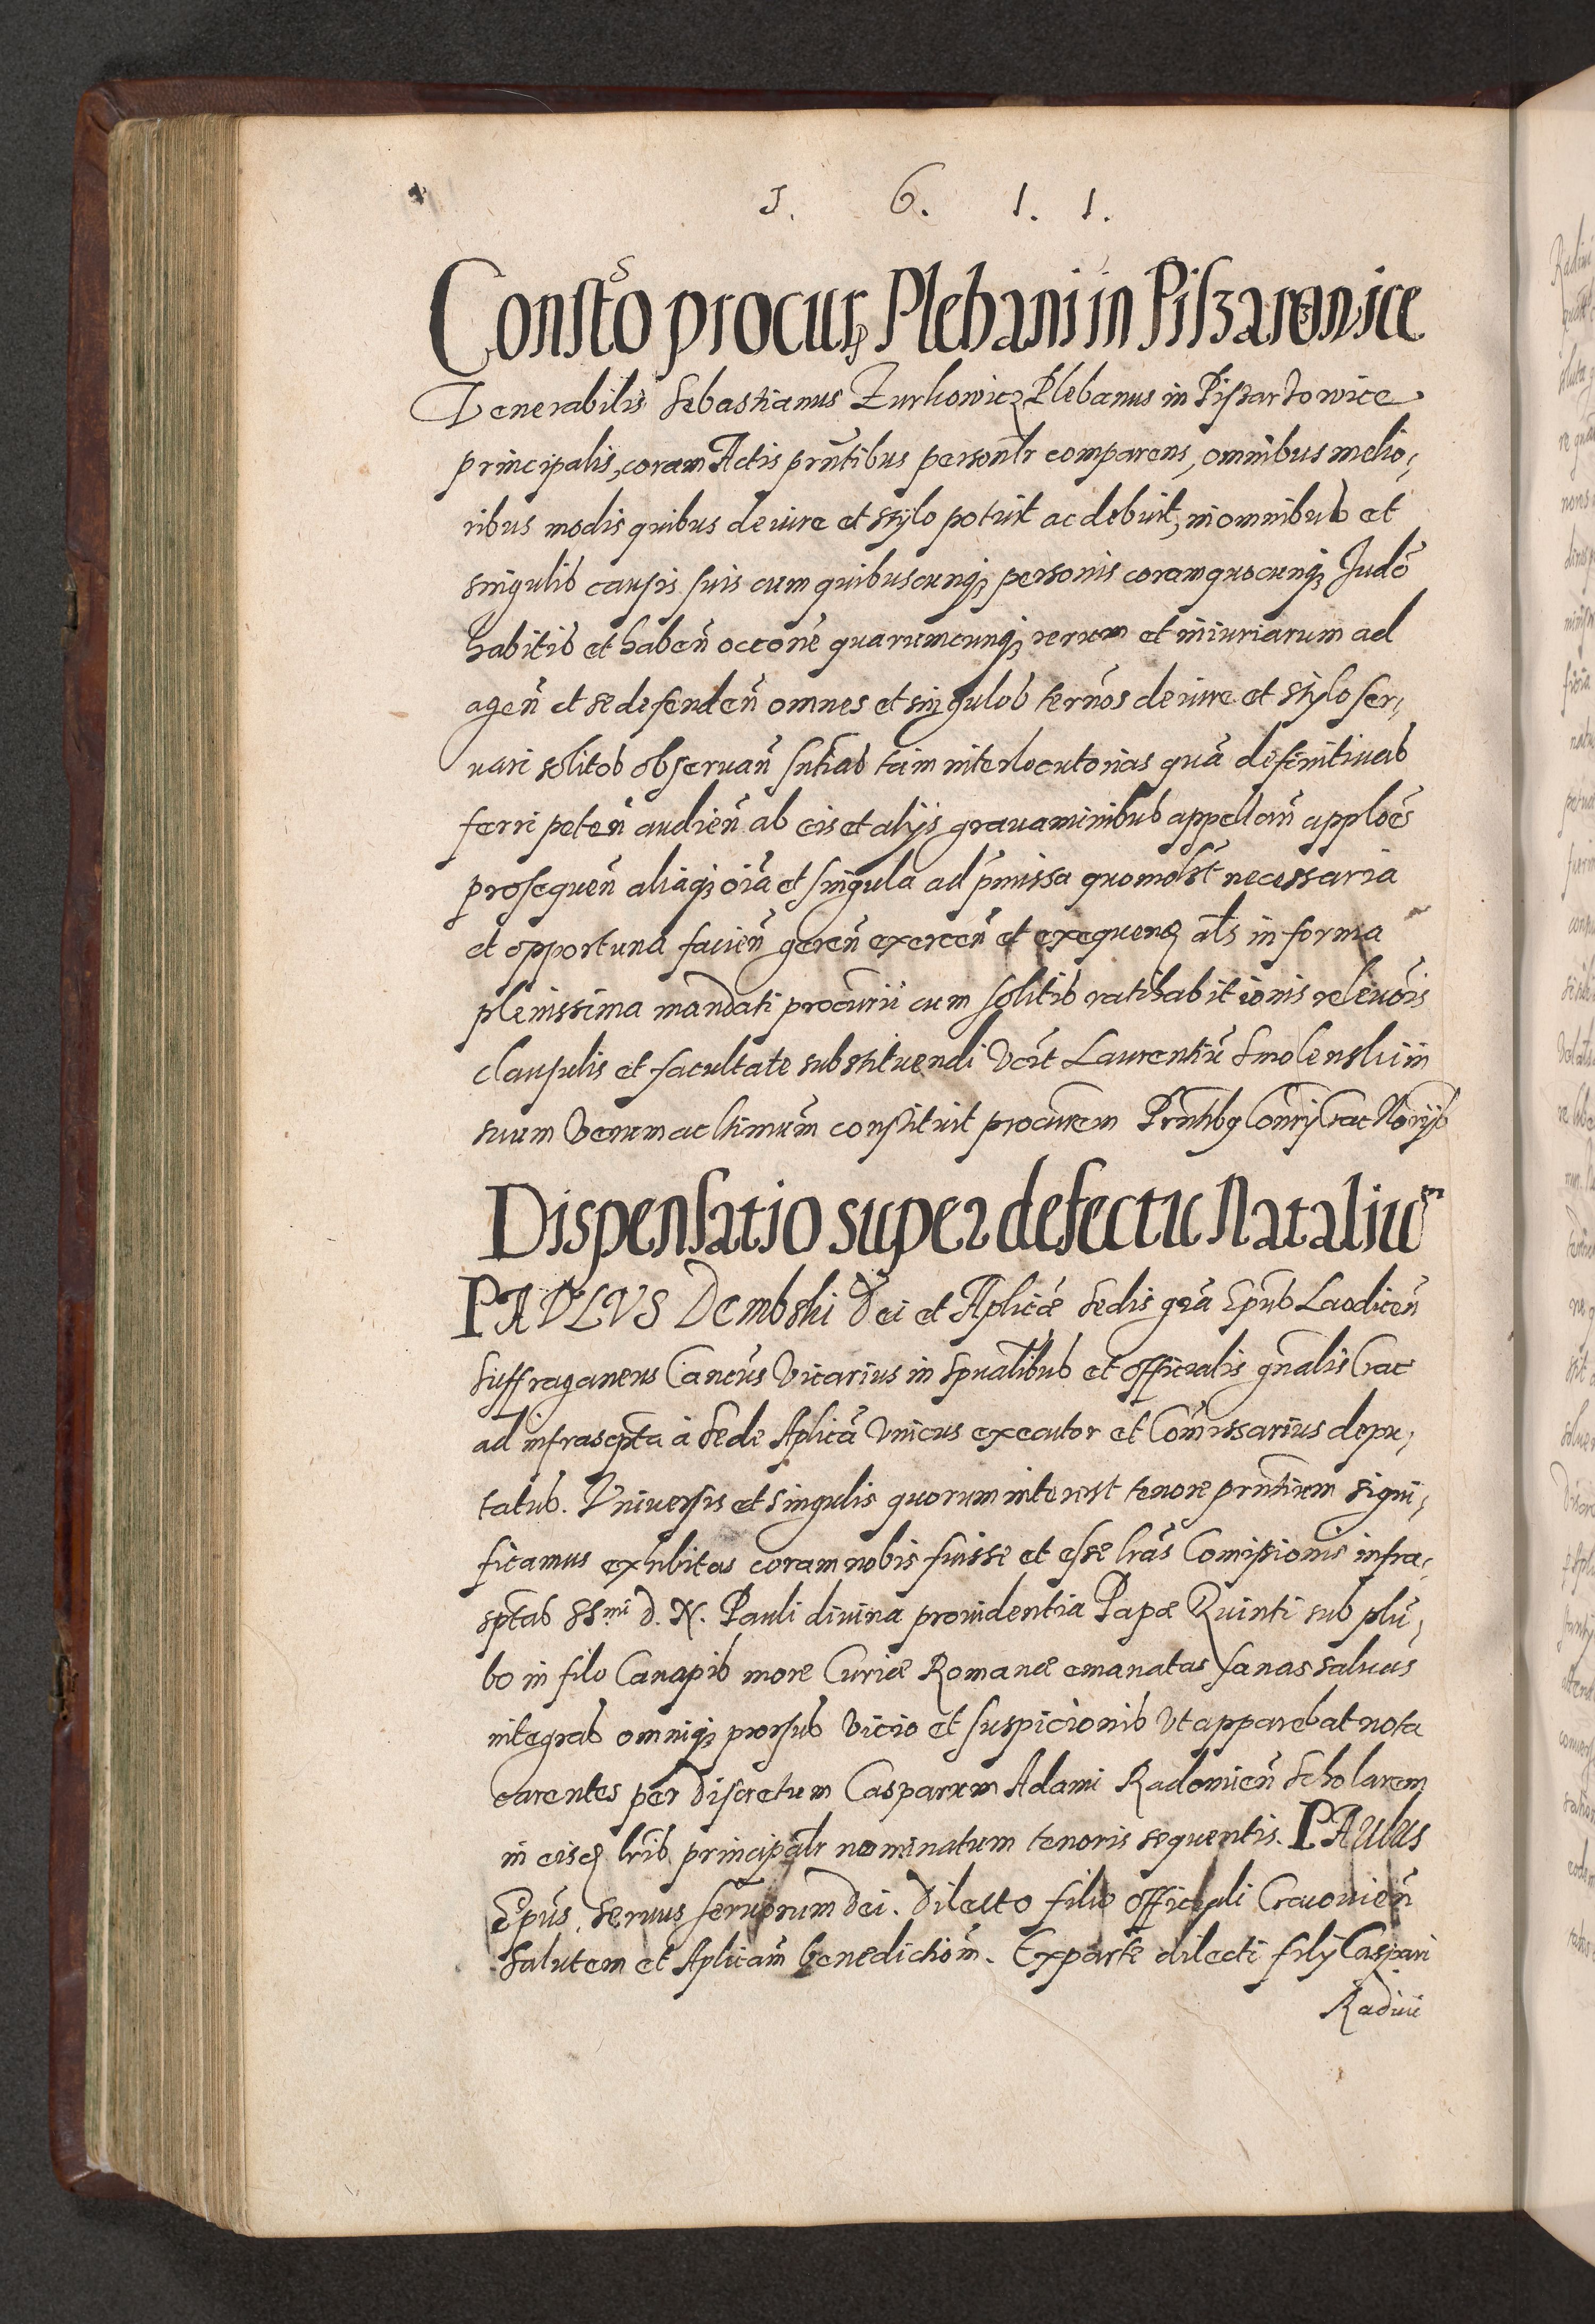 1. 6. 1. 1.
Constõ procur Plebani in Piszarowice
Venerabilis Sebastianus Zurkowicz Plebanus in Piszarzowice
principalis, coram Actis prñtibus personlr comparens, omnibus melio,
ribus modis quibus de iure et stylo potuit ac debuit, in omnibus et
singulis causis suis cum quibuscunq; personis coram quocunq; Judõ
habitis et habeñ occoñe quarumcunq; rerum et iniuriarum ad
ageñ et se defendeñ omnes et singulos terños de iure et stylo ser,
uari solitos obseruañ sntias tam interlocutorias quã definitiuas
ferri peteñ audieñ ab eis et alijs grauaminibus appellañ apploẽs
prosequeñ aliaq; oĩa et singula ad p̃missa quomolt necessaria
et opportuna facieñ gereñ exerceñ et exequeñ als in forma
plenissima mandati procurij cum solitis ratihabitionis releuõis
clausulis et facultate substituendi Vcit Laurentiũ Smolenski in
suum verum ac ltimum constituit procurem Prñtibg Conrij Crac Norijs
Dispensatio super defectu Nataliũm
PAULUS Dembski Dei et Aplicæ Sedis grã Epus Laodiceñ
Suffraganeus Cancũs Vicarius in Spualibus et Officialis gñalis Crac
ad infrascpta à Sede Aplicã Vnicus executor et Com̃issarius depu,
tatus. Vniuersis et singulis quorum interest tenore prñtium signi,
ficamus exhibitas coram nobis fuisse et esse lrãs Comissionis infra,
sptas SSmi d. N. Pauli diuina prouidentia Papæ Quinti sub plũ,
bo in filo Canapis more Curiæ Romanæ emanatas sanas saluas
integras omniq; prorsus vicio et suspicionis vt apparebat nota
carentes per discretum Casparum Adami Radomieñ Scholarem
in eisd lris principalr nominatum tenoris sequentis. PAulus
Epũs, Seruus seruorum Dei. Dilecto filio Officiali Cracouieñ
Salutem et Aplicam benedictiom̃. Ex parte dilecti filij Caspari